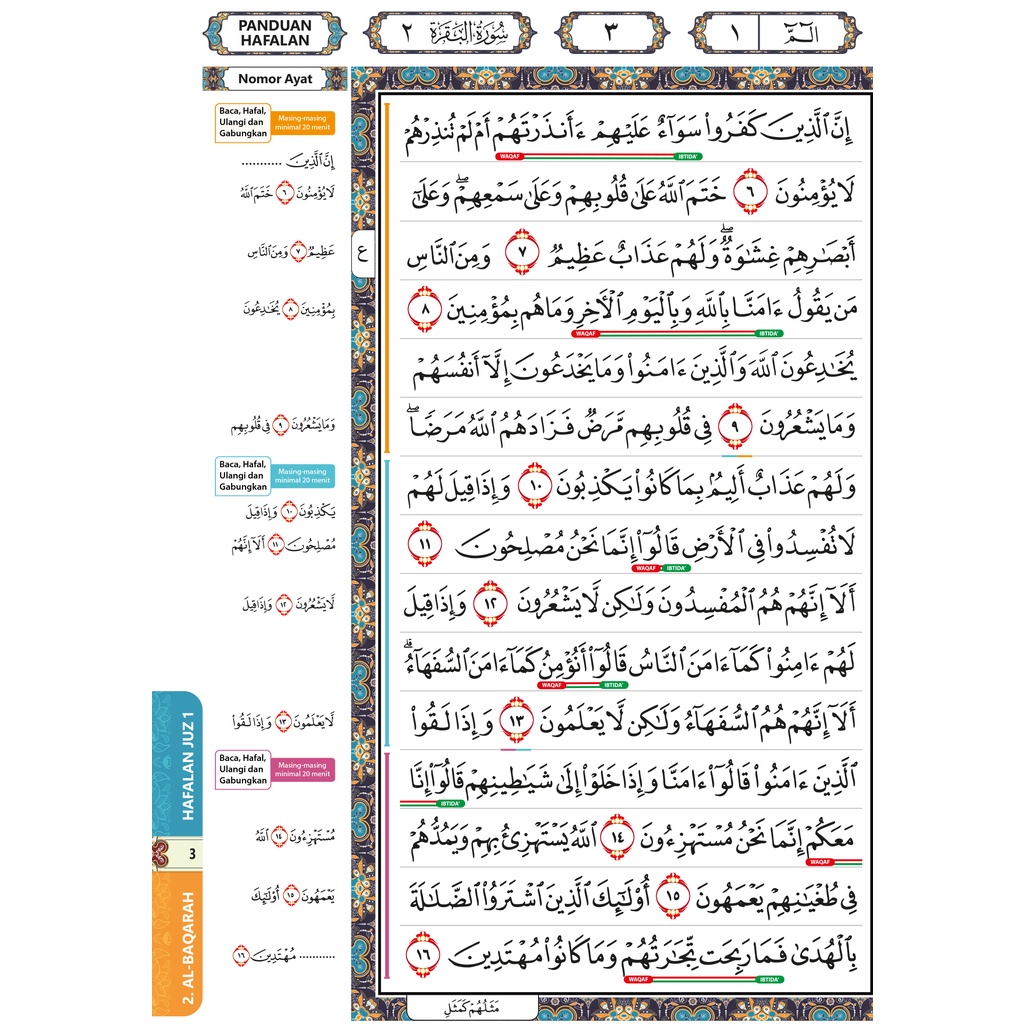 PANDUAN
HAFALAN
سُورَةُ البَقَرَة ٢
٣
الٓمّٓ ١
Nomor Ayat
Baca, Hafal,
Ulangi dan
Gabungkan
Masing-masing
minimal 20 menit
إِنَّ ٱلَّذِينَ ...........
لَا يُؤْمِنُونَ ٦ خَتَمَ ٱللَّهُ
عَظِيمٌ ٧ وَمِنَ ٱلنَّاسِ
بِمُؤْمِنِينَ ٨ يُخَٰدِعُونَ
وَمَا يَشْعُرُونَ ٩ فِى قُلُوبِهِم
Baca, Hafal,
Ulangi dan
Gabungkan
Masing-masing
minimal 20 menit
يَكْذِبُونَ ١٠ وَإِذَا قِيلَ
مُصْلِحُونَ ١١ أَلَآ إِنَّهُمْ
لَّا يَشْعُرُونَ ١٢ وَإِذَا قِيلَ
لَّا يَعْلَمُونَ ١٣ وَإِذَا لَقُوا۟
Baca, Hafal,
Ulangi dan
Gabungkan
Masing-masing
minimal 20 menit
مُسْتَهْزِءُونَ ١٤ ٱللَّهُ
يَعْمَهُونَ ١٥ أُو۟لَٰٓئِكَ
........... مُهْتَدِينَ ١٦
HAFALAN JUZ 1
3
2. AL-BAQARAH
ع
إِنَّ ٱلَّذِينَ كَفَرُوا۟ سَوَآءٌ عَلَيْهِمْ ءَأَنذَرْتَهُمْ أَمْ لَمْ تُنذِرْهُمْ
WAQAF IBTIDA'
لَا يُؤْمِنُونَ ٦ خَتَمَ ٱللَّهُ عَلَىٰ قُلُوبِهِمْ وَعَلَىٰ سَمْعِهِمْ ۖ وَعَلَىٰٓ
أَبْصَٰرِهِمْ غِشَٰوَةٌ ۖ وَلَهُمْ عَذَابٌ عَظِيمٌ ٧ وَمِنَ ٱلنَّاسِ
مَن يَقُولُ ءَامَنَّا بِٱللَّهِ وَبِٱلْيَوْمِ ٱلْـَٔاخِرِ وَمَا هُم بِمُؤْمِنِينَ ٨
WAQAF IBTIDA'
يُخَٰدِعُونَ ٱللَّهَ وَٱلَّذِينَ ءَامَنُوا۟ وَمَا يَخْدَعُونَ إِلَّآ أَنفُسَهُمْ
وَمَا يَشْعُرُونَ ٩ فِى قُلُوبِهِم مَّرَضٌ فَزَادَهُمُ ٱللَّهُ مَرَضًا ۖ
وَلَهُمْ عَذَابٌ أَلِيمٌۢ بِمَا كَانُوا۟ يَكْذِبُونَ ١٠ وَإِذَا قِيلَ لَهُمْ
لَا تُفْسِدُوا۟ فِى ٱلْأَرْضِ قَالُوٓا۟ إِنَّمَا نَحْنُ مُصْلِحُونَ ١١
WAQAF IBTIDA'
أَلَآ إِنَّهُمْ هُمُ ٱلْمُفْسِدُونَ وَلَٰكِن لَّا يَشْعُرُونَ ١٢ وَإِذَا قِيلَ
لَهُمْ ءَامِنُوا۟ كَمَآ ءَامَنَ ٱلنَّاسُ قَالُوٓا۟ أَنُؤْمِنُ كَمَآ ءَامَنَ ٱلسُّفَهَآءُ ۗ
WAQAF IBTIDA'
أَلَآ إِنَّهُمْ هُمُ ٱلسُّفَهَآءُ وَلَٰكِن لَّا يَعْلَمُونَ ١٣ وَإِذَا لَقُوا۟
ٱلَّذِينَ ءَامَنُوا۟ قَالُوٓا۟ ءَامَنَّا وَإِذَا خَلَوْا۟ إِلَىٰ شَيَٰطِينِهِمْ قَالُوٓا۟ إِنَّا
IBTIDA'
مَعَكُمْ إِنَّمَا نَحْنُ مُسْتَهْزِءُونَ ١٤ ٱللَّهُ يَسْتَهْزِئُ بِهِمْ وَيَمُدُّهُمْ
WAQAF
فِى طُغْيَٰنِهِمْ يَعْمَهُونَ ١٥ أُو۟لَٰٓئِكَ ٱلَّذِينَ ٱشْتَرَوُا۟ ٱلضَّلَٰلَةَ
بِٱلْهُدَىٰ فَمَا رَبِحَت تِّجَٰرَتُهُمْ وَمَا كَانُوا۟ مُهْتَدِينَ ١٦
WAQAF IBTIDA'
مَثَلُهُمْ كَمَثَلِ